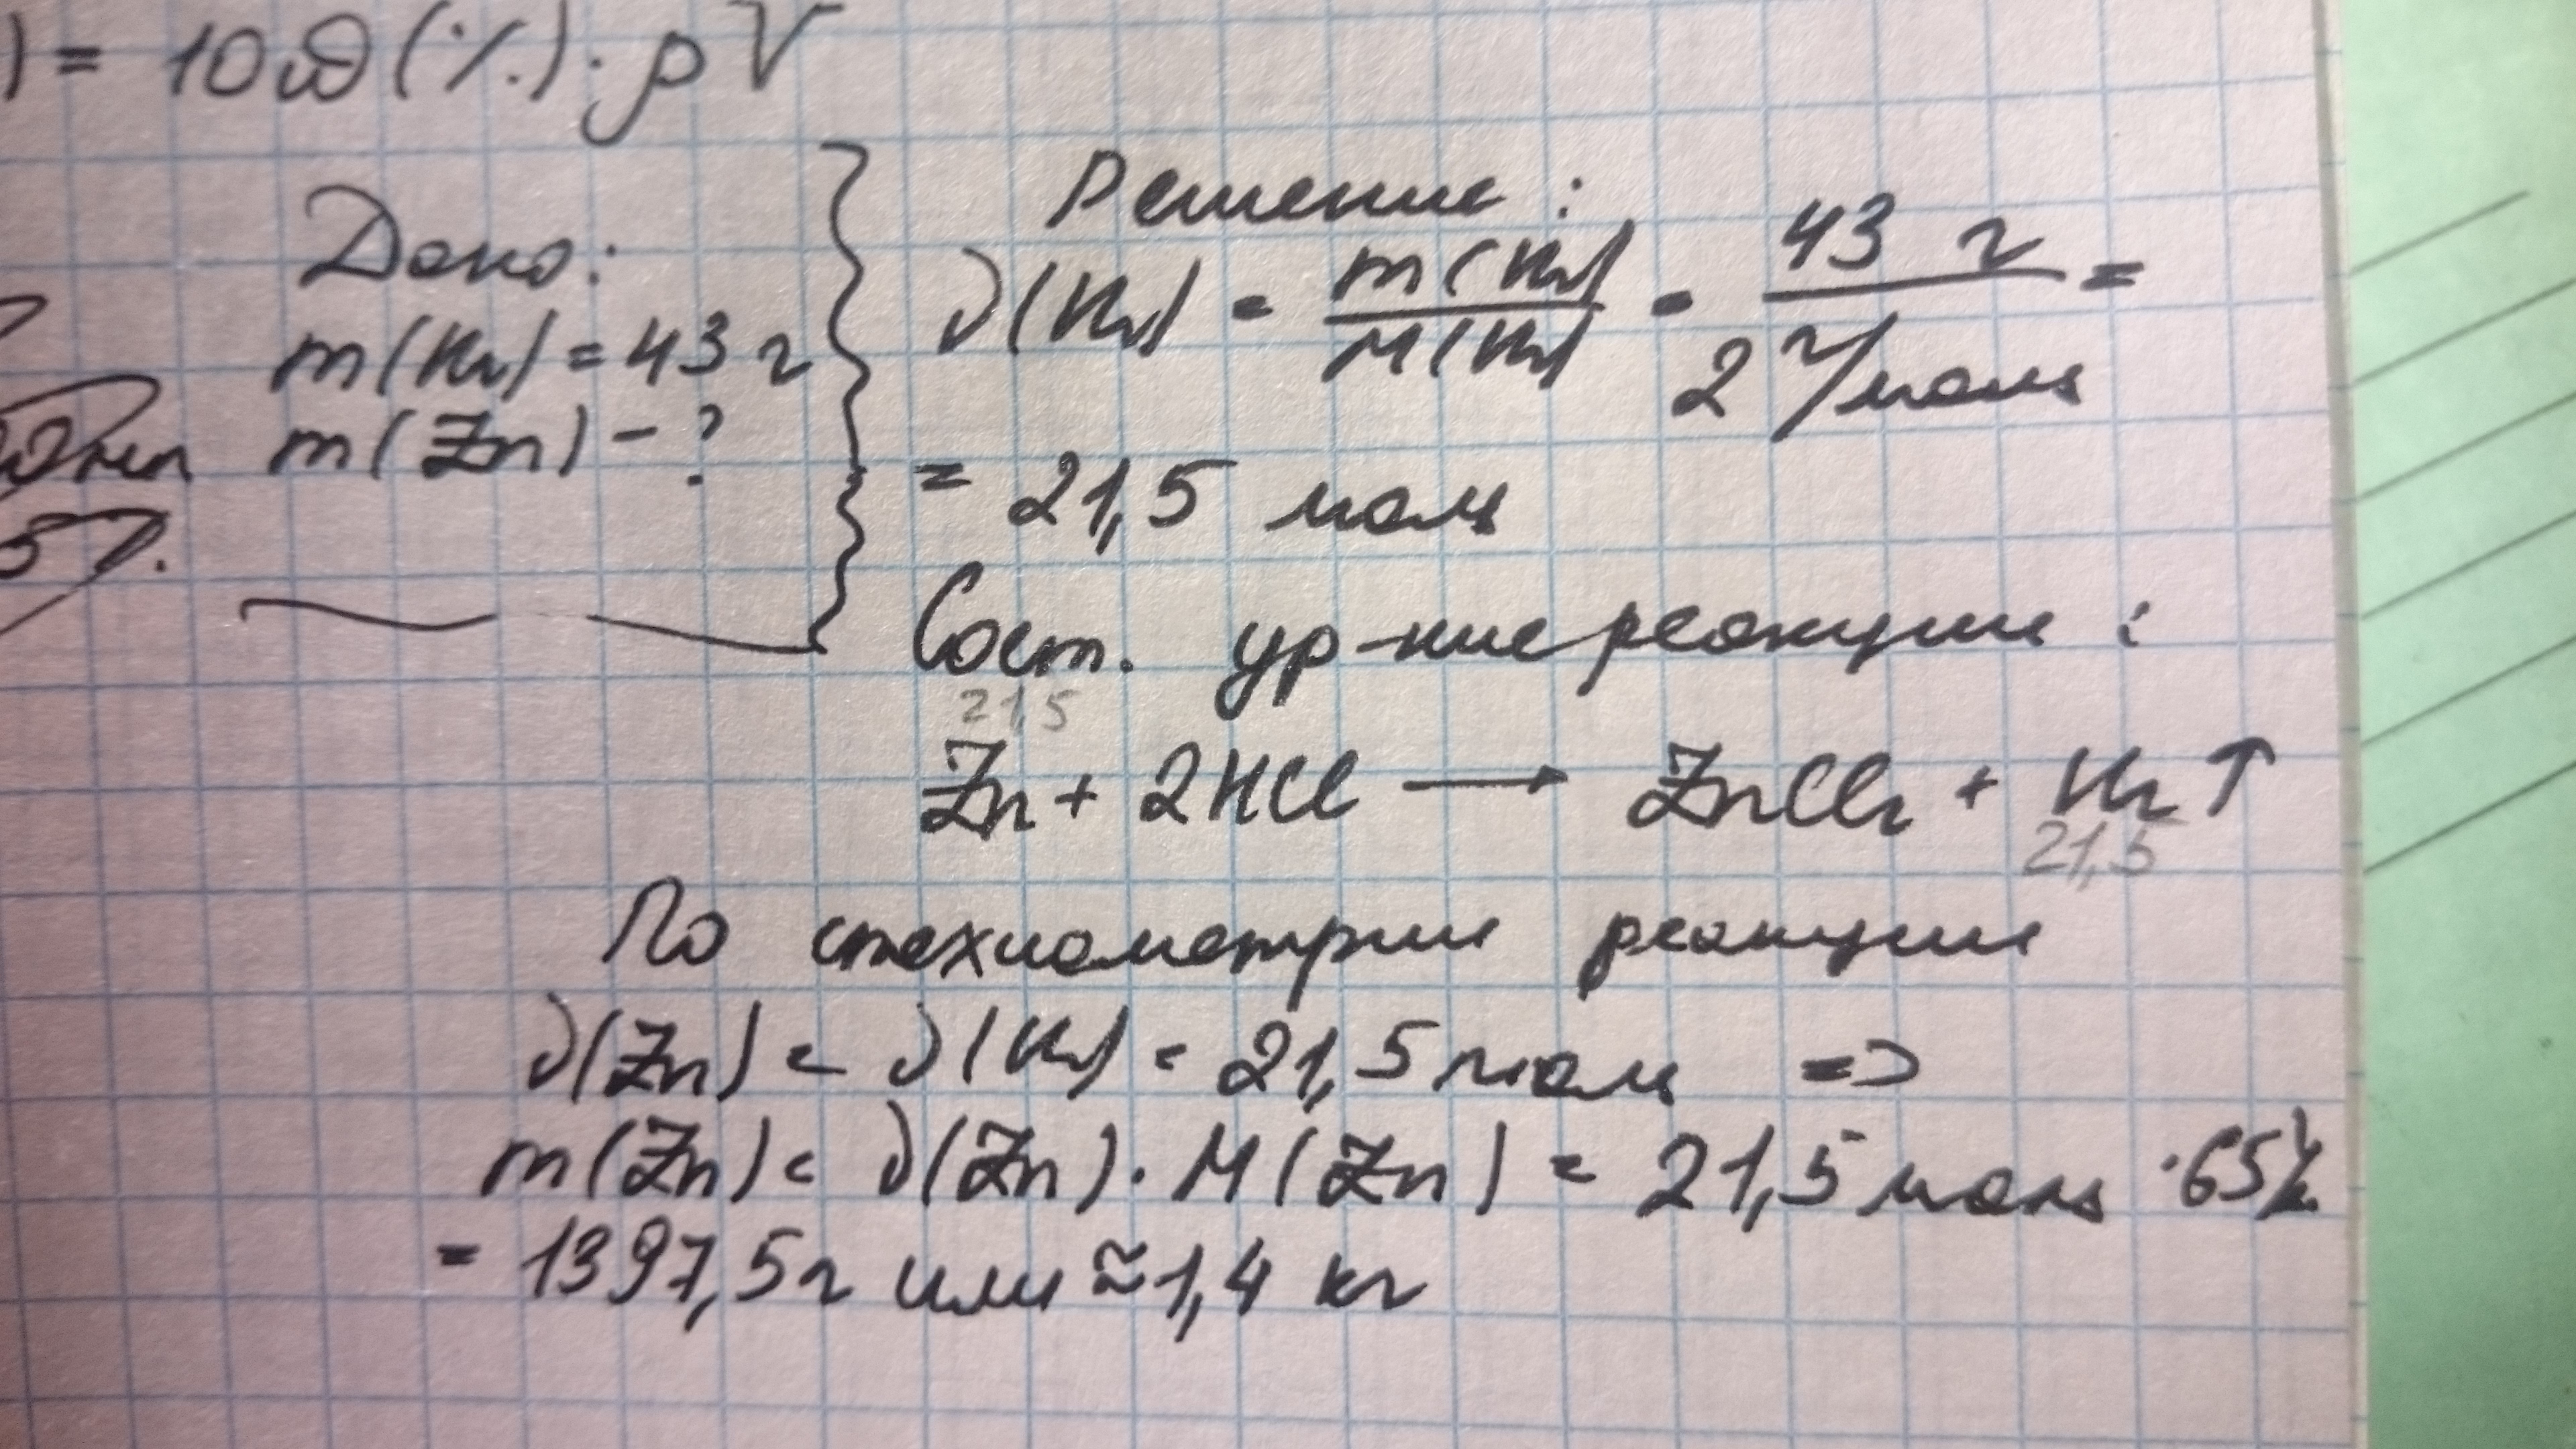 ) = 10ω(%)·ρV
Дано:
m(H₂) = 43 г
m(Zn) - ?
5%.
Решение:
ν(H₂) = m(H₂)/M(H₂) = 43 г/2 г/моль =
= 21,5 моль
Сост. ур-ние реакции:
21,5
Zn + 2HCl ⟶ ZnCl₂ + H₂↑
21,5
По стехиометрии реакции
ν(Zn) = ν(H₂) = 21,5 моль =>
m(Zn) = ν(Zn)·M(Zn) = 21,5 моль ·65
= 1397,5г или ≈1,4 кг